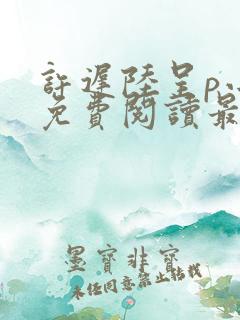 許遲陸呈p
免費閱讀最
墨寶非寶
未任同意禁止轉載